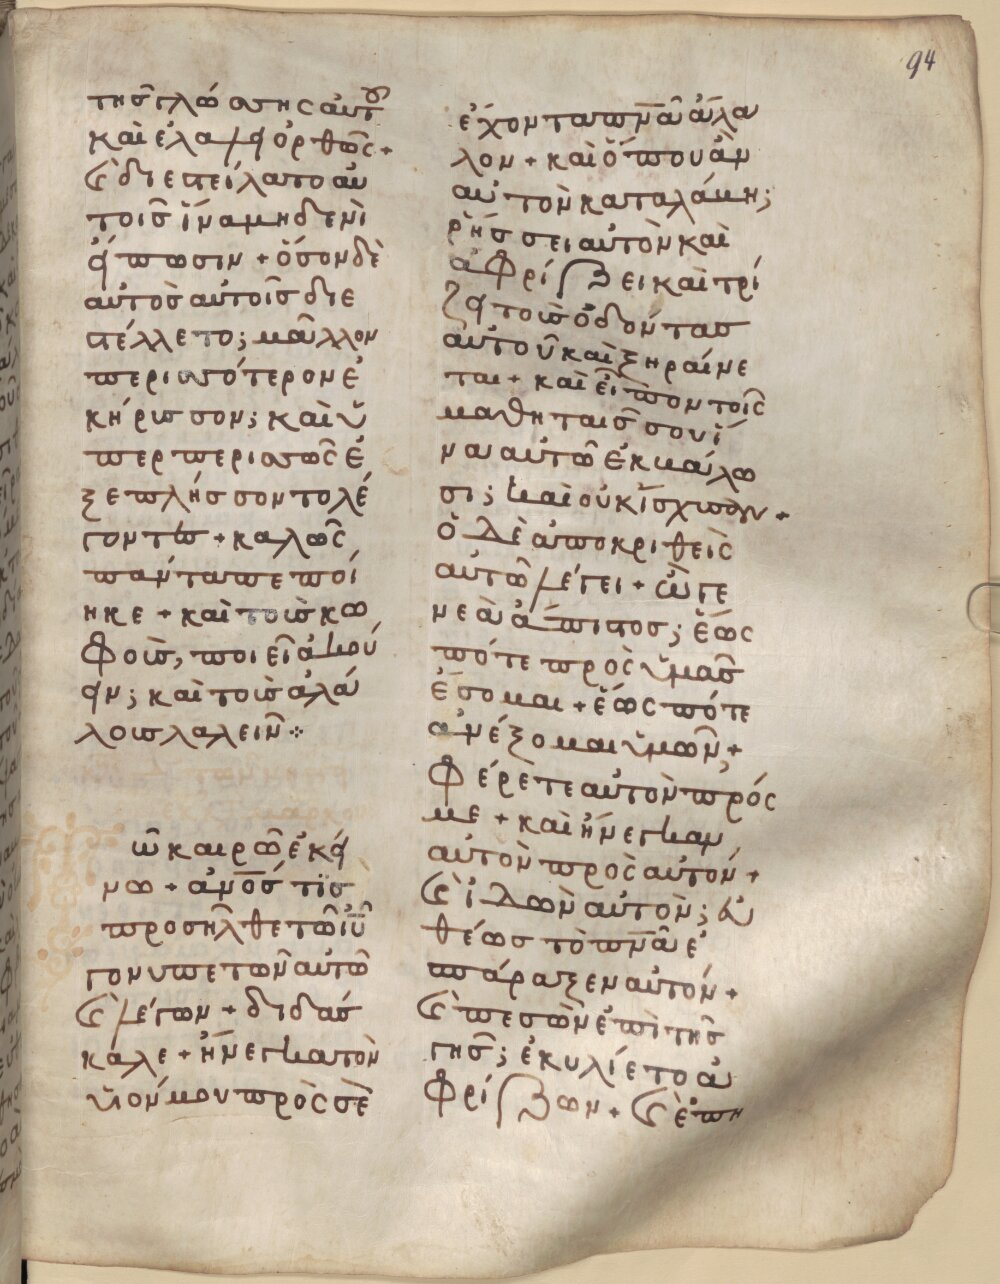 94
τησ γλώσσης αὐτοῦ
καὶ ἐλάλῃ ὀρθῶς +
Καὶ διεστείλατο αὐ
τοῖσ ἵνα μηδενὶ
ἤπωσιν + ὅσον δὲ
αὐτὸσ αὐτοῖσ διε
στέλλετο; μᾶλλον
περισσότερον ἐ
κήρισσον; καὶ ὓ
περπερισσῶς ἐ
ξεπλήσσοντο λέ
γοντισ + καλῶς
πάντα πεποί
ηκε + καὶ τοισ κω
φοὶσ, ποιεῖ ἀκού
ῃν; καὶ τοισ ἀλά
λοισ λαλεῖν ⁘
ῶ καιρῶ ἐκή
νω + ἀν̅ο̅σ τϊσ
προσῆλθε τῶ ι̅υ̅
γονυπετῶν αὐτῶ
Καὶ λέγων + διδάσ
καλε + ἤνεγκα τὸν
ὑιόν μου πρὸς σὲ
ἔχοντα πν̅α̅ ἄλα
λον + καὶ ὅπου ἀν
αὐτὸν καταλάμη;
ρήσσει αὐτὸν καὶ
ἀφρίζει καὶ τρί
ζῃ τοισ ὀδόντασ
αὐτοῦ καὶ ξηραίνε
ται + καὶ εἶπον τοῖς
μαθηταισ σου ἵ
να αὐτῶ ἐκβάλω
σι; καὶ οὐκ ἴσχισαν +
ὁ δὲ ἀποκριθεὶς
αὐτῶ λέγει + ὦ γε
νεὰ ἄπιστοσ; ἕως
πότε πρὸς ὑμᾶσ
ἔσομαι + ἕως πότε
ἀνέξομαι ὑμῶν +
Φέρετε αὐτὸν πρός
με + καὶ ἤνεγκαν
αὐτὸν πρὸς αὐτόν +
Καὶ ἰδὼν αὐτὸν; εὐ
θέωσ τὸ πν̅α̅ ε᾽
σπάραξεν αὐτόν +
Καὶ πεσὼν ἐπὶ τῆσ
γῆσ; ἐκυλίετο ἀ
φρίζων + Καὶ ἐπη